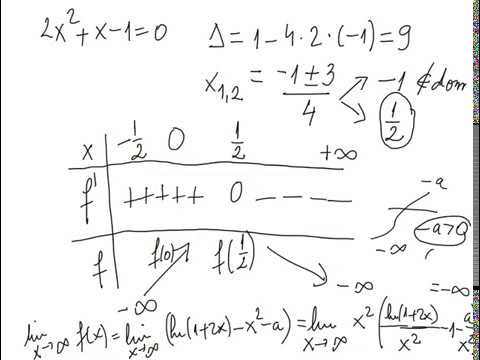 2x² + x - 1 = 0
Δ = 1 - 4·2·(-1) = 9
x₁,₂ = (-1 ± 3)/4 → -1 ∉ dom
→ 1/2
x | -1/2 0 1/2 +∞
f' | + + + + + 0 - - - -
f | -∞ f(0) f(1/2) -∞
-a
-a > 0
-∞
= -∞
lim x→∞ f(x) = lim x→∞ (ln(1+2x) - x² - a) = lim x→∞ x² (ln(1+2x)/x² - 1 - a/x²